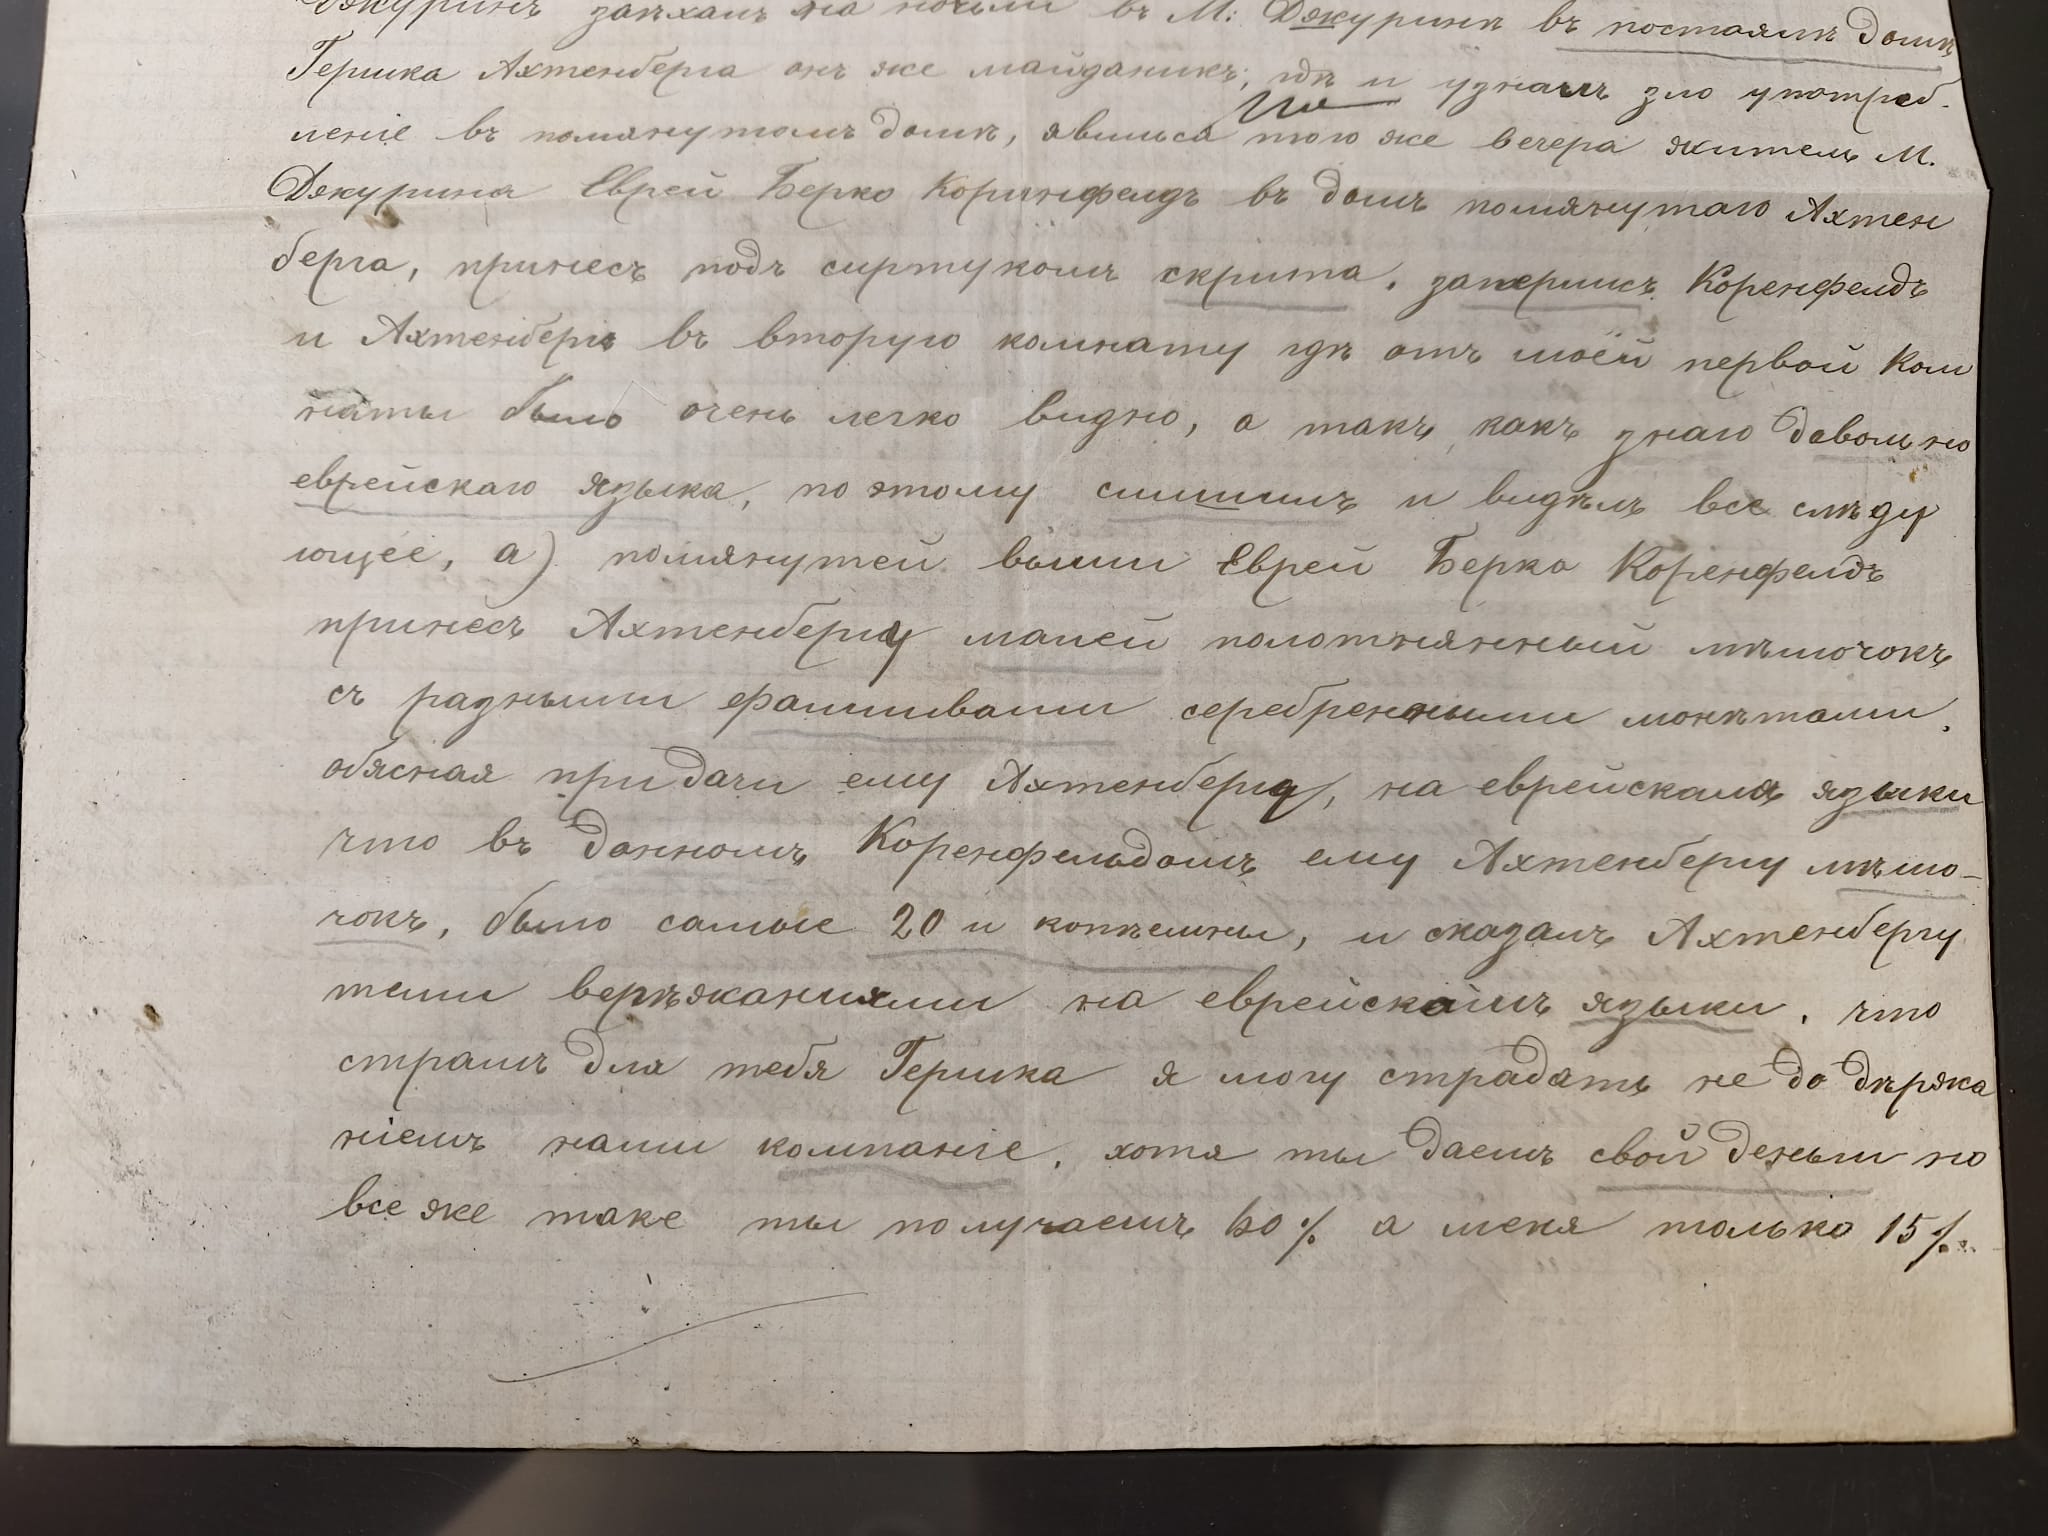 Джуринъ заѣхалъ на ночли въ М: Джуринѣ въ постоялъ домѣ
Гершка Ахтенберга онъ же майданикъ, гдѣ и узналъ зло употреб-
леніе въ помянутомъ домѣ, явился того же вечера житель М.
Джурина Еврей Берко Коринфелдъ въ домъ помянутаго Ахтен
берга, принесъ подъ сиртукомъ скрита, заперлисъ Коренфелдъ
и Ахтенбергъ въ вторую комнату гдѣ отъ моей первой ком
наты было очень легко видно, а такъ какъ знаю довольно
еврейскаго языка, по этому слишилъ и видѣлъ все слѣду
ющее, а) помянутей выши Еврей Берко Коренфелдъ
принесъ Ахтенбергу малей полотнянный мѣшочокъ
съ разными фалшивами серебренными монѣтами,
обясная при дачи ему Ахтенбергу, на еврейскамъ языки
что въ данномъ Коренфельдомъ ему Ахтенбергу мѣшо-
чокъ, было самые 20 и копѣешны, и сказалъ Ахтенбергу
теми верѣжканиями на еврейскаимъ языки, что
страшъ для тебя Гершка я могу страдать не до дѣржа
ніемъ наши компаніе, хотя ты даешъ свой деньги но
все же таке ты получаешъ 60% а меня только 15%.